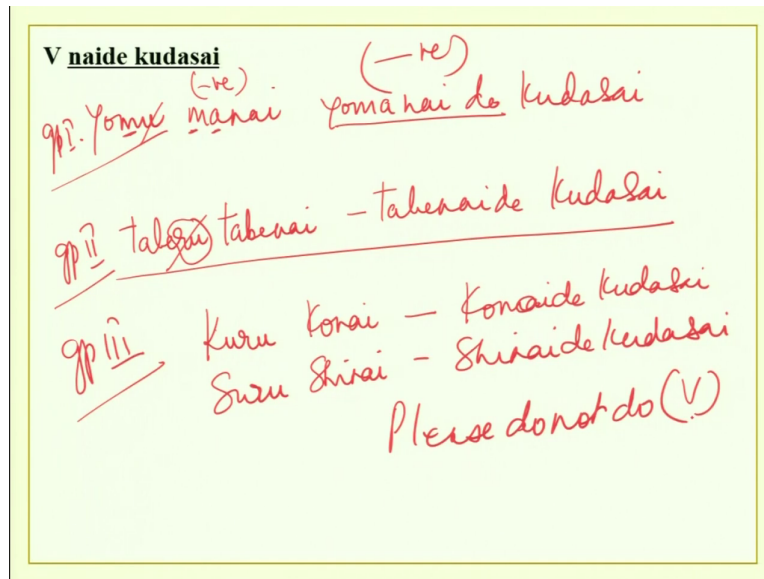 V naide kudasai
(-ve) (-ve)
gp I. Yomu manai yomanai de kudasai
gp II taberu tabenai - tabenaide kudasai
gp III. Kuru Konai - Konaide kudasai
Suru Shinai - Shinaide kudasai
Please do not do (V)